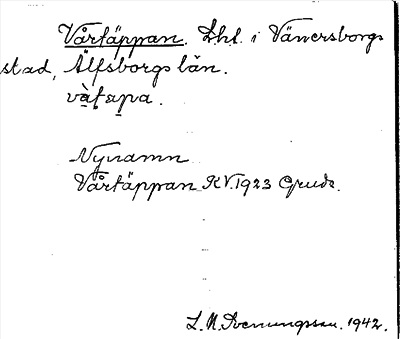 Vårtäppan. Lht. i Vänersborgs
stad, Älfsborgs län.
vàtapa.
Nynamn
Vårtäppan KV. 1923 Grude.
L. N. Svenungsson. 1942.